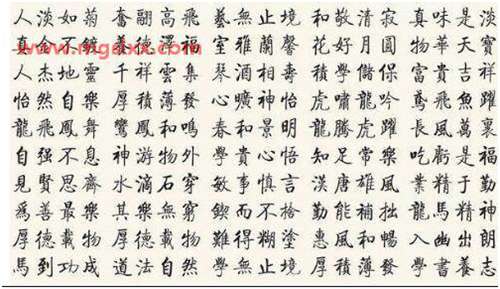 人淡如菊 奮翮高飛 藝無止境 和敬清寂 真味是淡
真金不鍍 善德澤福 室雅蘭馨 花好月圓 物華天寶
人杰地靈 千祥雲集 琴酒相壽 積學儲保 富貴吉祥
怡然自樂 厚積薄發 心曠神怡 虎嘯龍吟 鳶飛魚躍
龍飛鳳舞 鸞鳳和鳴 春和景明 龍騰虎躍 長風萬裏
自强不息 神游物外 學貴心悟 知足常樂 吃虧是福
見賢思齊 水滴石穿 敏事慎言 漢唐雄風 業精于勤
爲善最樂 其樂無窮 鍥而不捨 勤能補拙 龍馬精神
厚德載物 厚德載物 難得糊塗 惠風和暢 入幽出朗
馬到功成 道法自然 學無止境 厚積薄發 學書養志